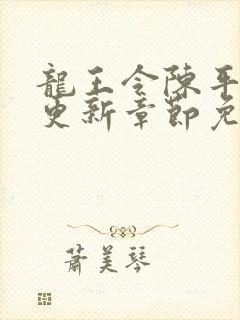 龍王令陳平
更新章節免
蕭美琴